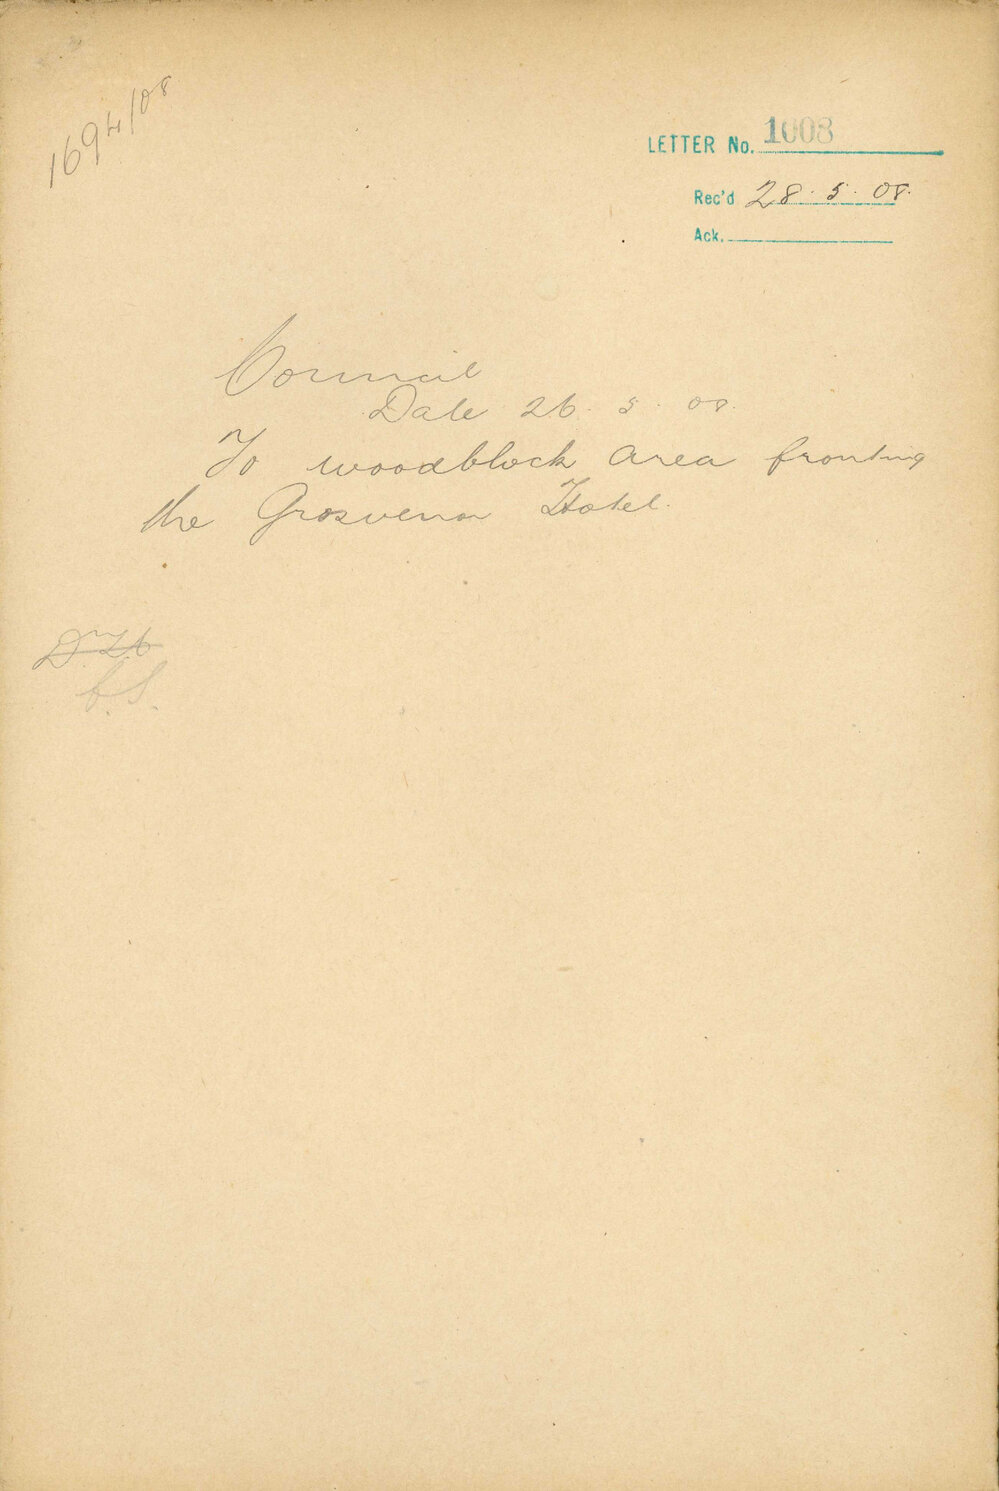 1694/08
LETTER No. 1003
Rec'd 28. 5. 08.
Ack.
Council
Date 26. 5. 08.
To woodblock area fronting
the Grosvenor Hotel.